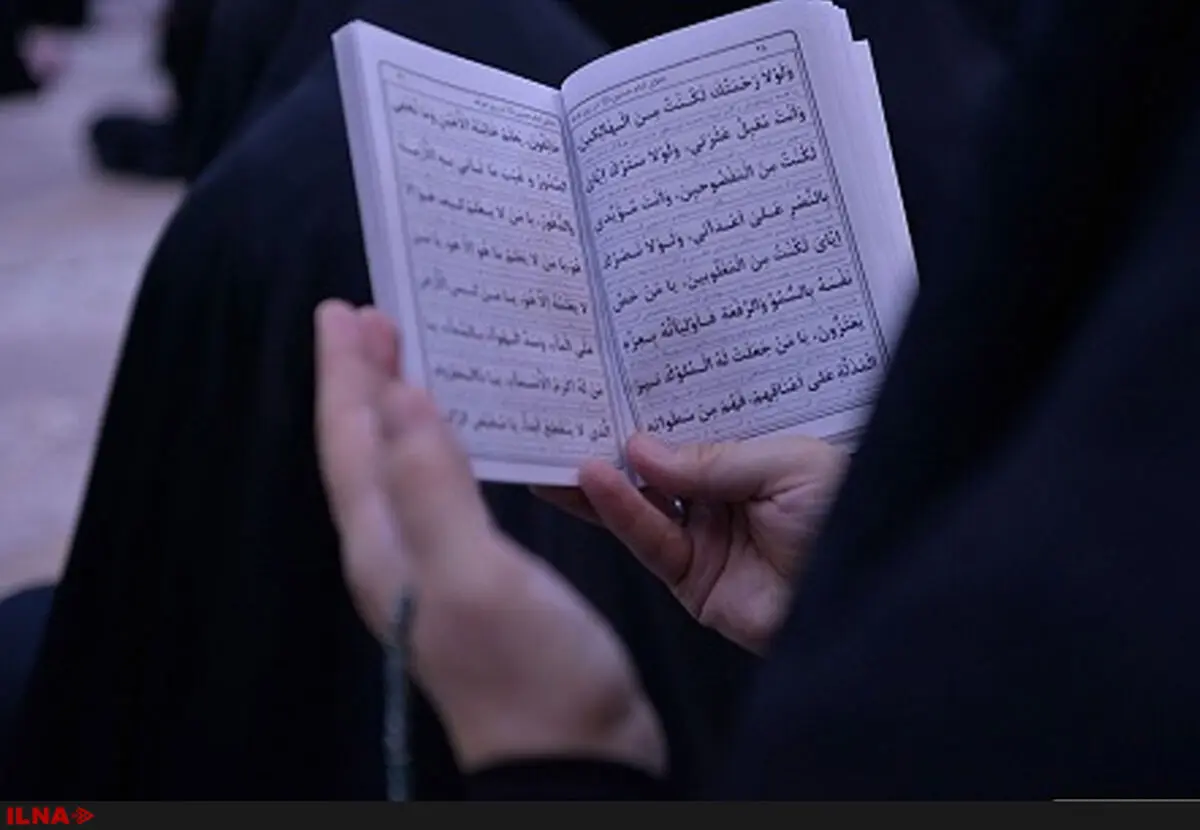 وَلَوْلا رَحْمَتُكَ لَكُنْتُ مِنَ الْهالِكينَ
وَاَنْتَ مُقيلُ عَثْرَتي، وَلَوْلا سَتْرُكَ اِيّايَ
لَكُنْتُ مِنَ الْمَفْضُوحينَ، وَاَنْتَ مُؤَيِّدي
بِالنَّصْرِ عَلى اَعْدائي، وَلَوْلا نَصْرُكَ
اِيّايَ لَكُنْتُ مِنَ الْمَغْلُوبينَ، يا مَنْ خَصَّ
نَفْسَهُ بِالسُّمُوِّ وَالرِّفْعَةِ فَاَوْلِياؤُهُ بِعِزِّهِ
يَعْتَزُّونَ، يا مَنْ جَعَلَتْ لَهُ الْمُلُوكُ نيرَ
الْمَذَلَّةِ عَلى اَعْناقِهِمْ، فَهُمْ مِنْ سَطَواتِهِ
خائِفُونَ، يَعْلَمُ خائِنَةَ الْاَعْيُنِ وَما تُخْفِي
الصُّدُورُ وَ غَيْبَ ما تَاْتي بِهِ الْاَزْمِنَةُ
وَالدُّهُورُ، يا مَنْ لا يَعْلَمُ كَيْفَ هُوَ اِلّا
هُوَ، يا مَنْ لا يَعْلَمُ ما هُوَ اِلّا هُوَ، يا مَنْ
لا يَعْلَمُهُ اِلّا هُوَ، يا مَنْ كَبَسَ الْاَرْضَ
عَلَى الْماءِ، وَسَدَّ الْهَواءَ بِالسَّماءِ، يا
مَنْ لَهُ اَكْرَمُ الْاَسْماءِ، يا ذَا الْمَعْرُوفِ
الَّذي لا يَنْقَطِعُ اَبَداً، يا مُقَيِّضَ الرَّكْبِ
ILNA